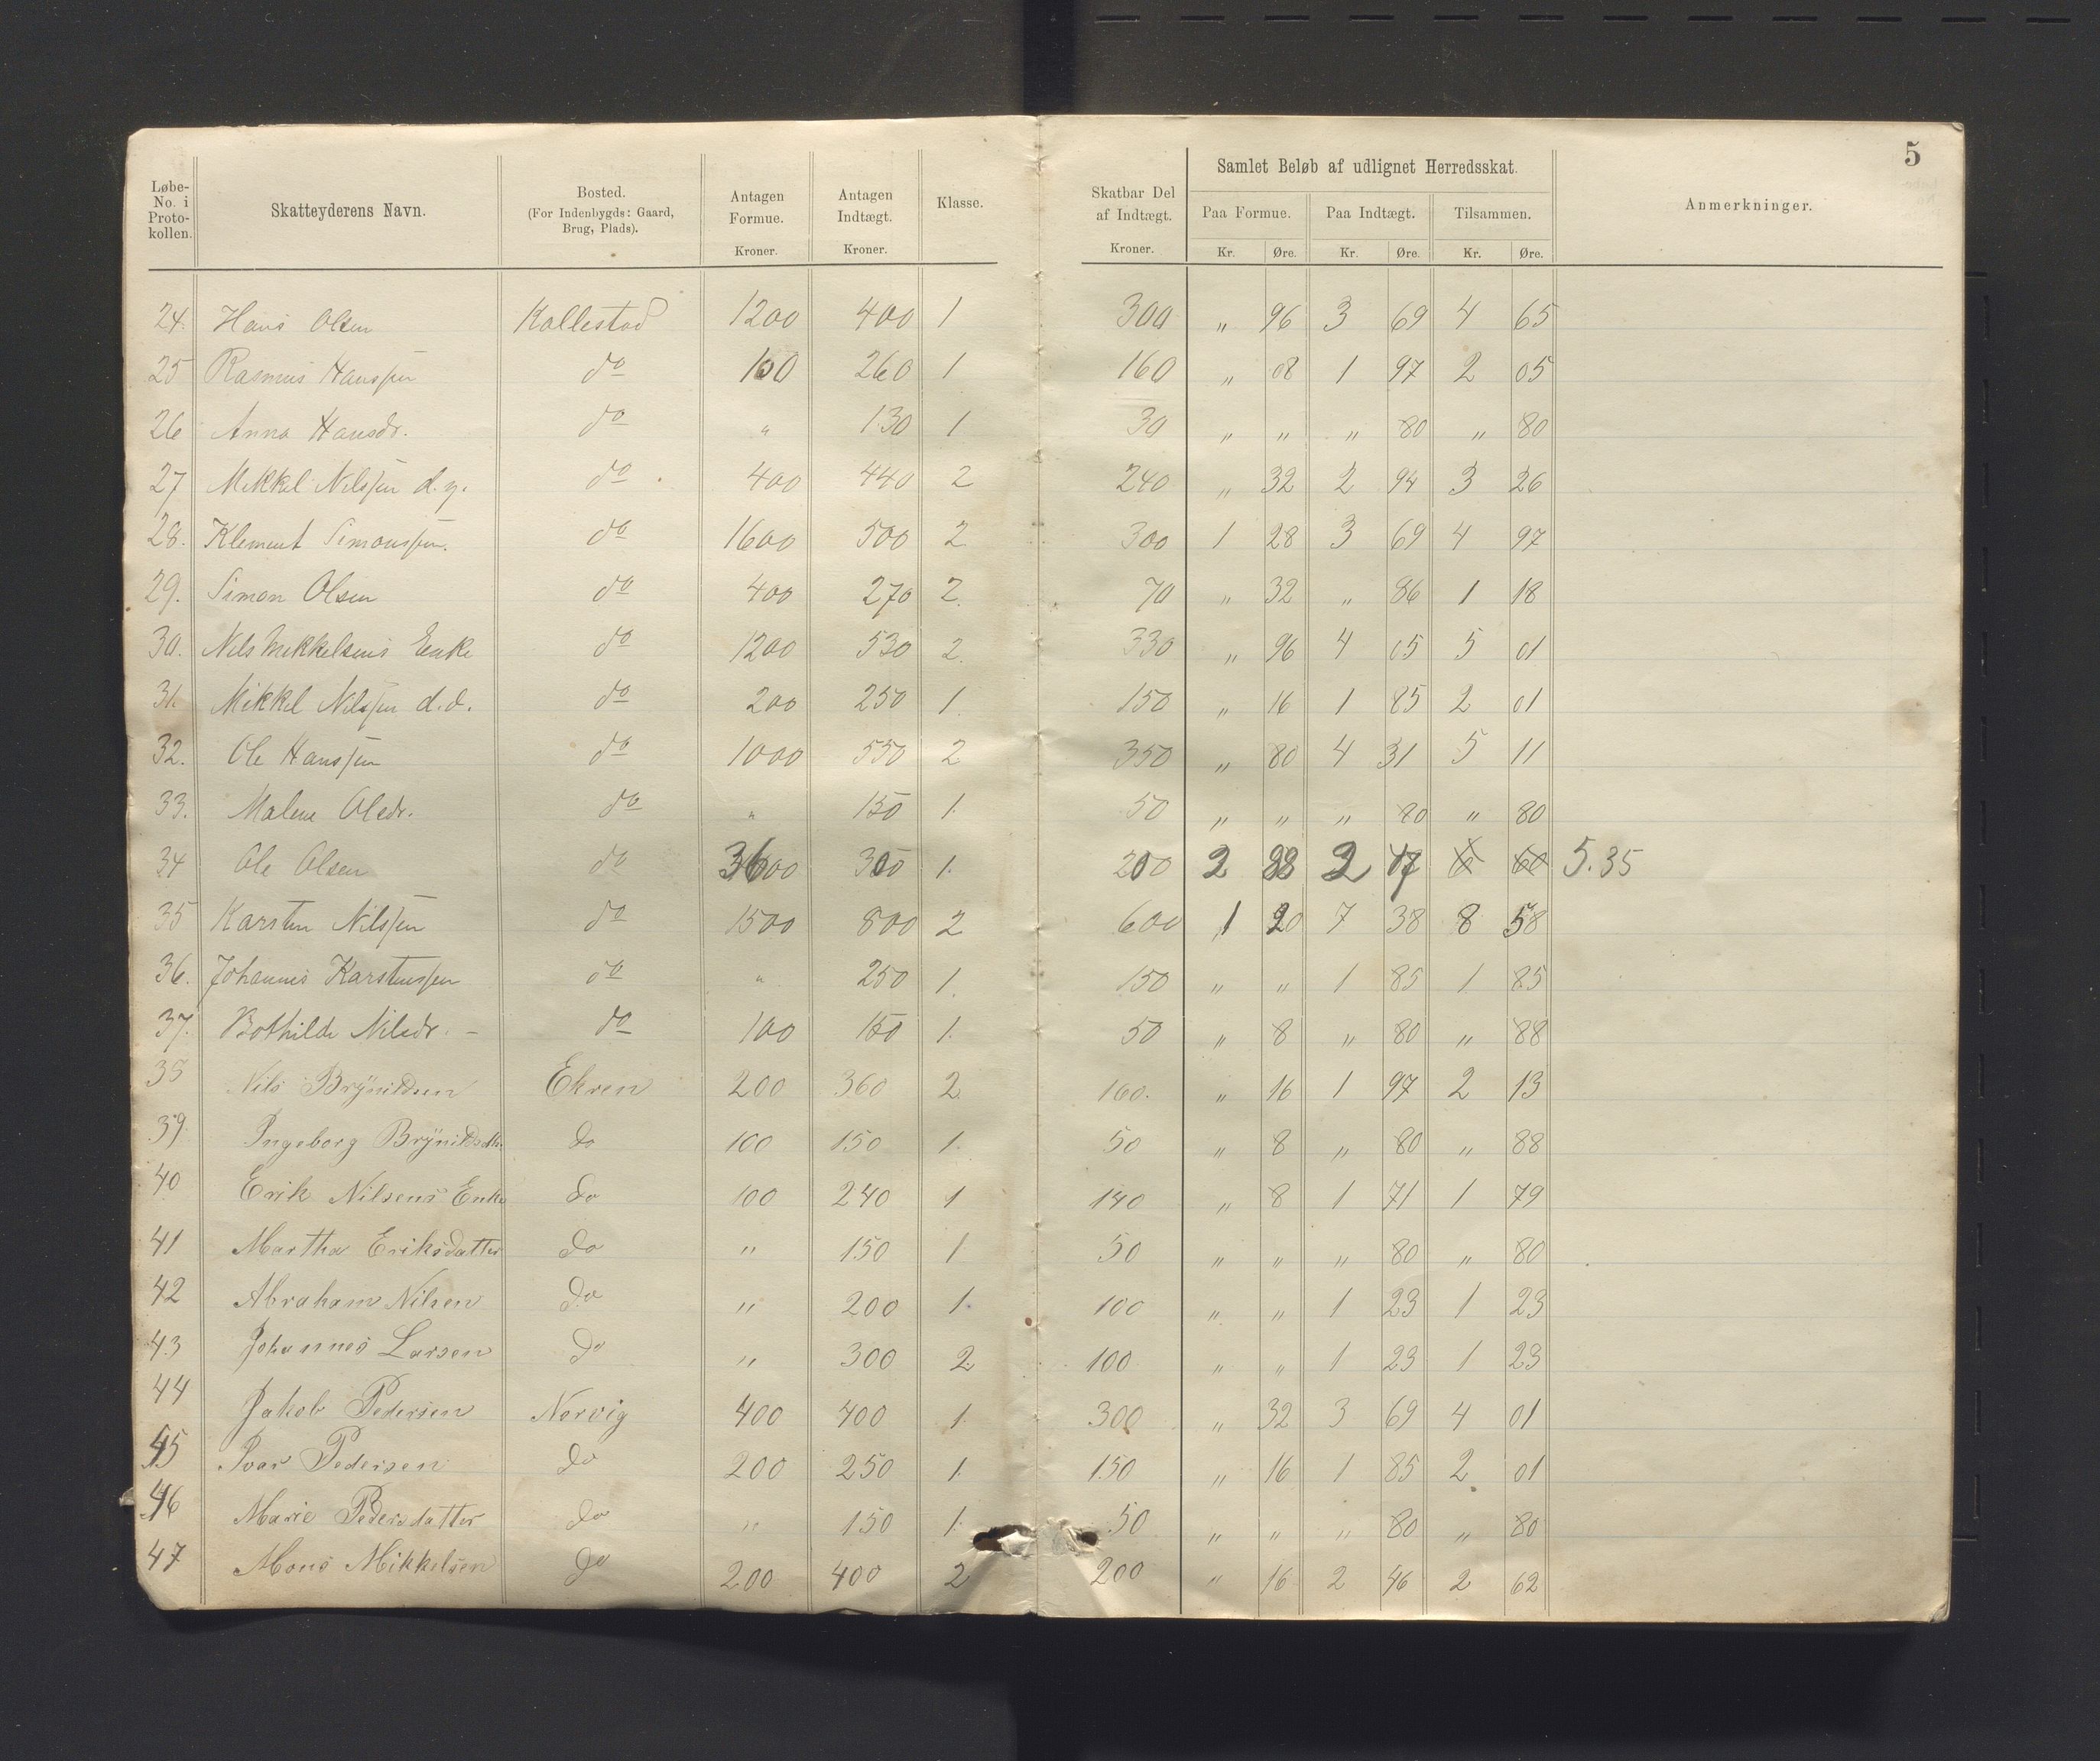 5
Løbe-No. i Proto-kollen. Skatteyderens Navn. Bosted. (For Indenbygds: Gaard, Brug, Plads). Antagen Formue. Kroner. Antagen Indtægt. Kroner. Klasse. Skatbar Del af Indtægt. Kroner. Samlet Beløb af udlignet Herredsskat. Paa Formue. Kr. Øre. Paa Indtægt. Kr. Øre. Tilsammen. Kr. Øre. Anmerkninger.
24. Hans Olsen Kallestad 1200 400 1 300 " 96 3 69 4 65
25 Rasmus Hanssen do 100 260 1 160 " 08 1 97 2 05
26 Anna Hansdr. do " 130 1 30 " " " 80 " 80
27 Mikkel Nilssen d.y. do 400 440 2 240 " 32 2 94 3 26
28. Klement Simonssen. do 1600 500 2 300 1 28 3 69 4 97
29. Simon Olsen do 400 270 2. 70 " 32 " 86 1 18
30. Nils Mikkelsens Enke do 1200 530 2. 330 " 96 4 05 5 01
31. Mikkel Nilssen d.d. do 200 250 1. 150 " 16 1 85 2 01
32. Ole Hanssen do 1000 550 2 350 " 80 4 31 5 11
33. Malene Olsdr. do " 150 1. 50 " " " 80 " 80
34 Ole Olsen do 3600 300 1. 200 2 88 2 47 5.35
35 Karsten Nilssen do 1500 800 2 600 1 20 7 38 8 58
36. Johannes Karstenssen do " 250 1. 150 " " 1 85 1 85
37. Bothilde Nilsdr. - do 100 150 1. 50 " 8 " 80 " 88
38 Nils Brÿnildsen Ekren 200 360 2. 160. " 16 1 97 2 13
39. Ingeborg Brÿnildsdtr. do 100 150 1. 50 " 8 " 80 " 88
40 Erik Nilsens Enke do 100 240 1 140 " 8 1 71 1 79
41 Martha Eriksdatter do " 150 1 50 " " " 80 " 80
42 Abraham Nilsen do " 200 1. 100 " " 1 23 1 23
43 Johannes Larsen do " 300 2. 100 " " 1 23 1 23
44 Jakob Pedersen Nervig 400 400 1. 300 " 32 3 69 4 01
45 Ivar Pedersen do 200 250 1. 150 " 16 1 85 2 01
46 Marie Pedersdatter do " 150 1. 50 " " " 80 " 80
47 Mons Mikkelsen do 200 400 2 200 " 16 2 46 2 62